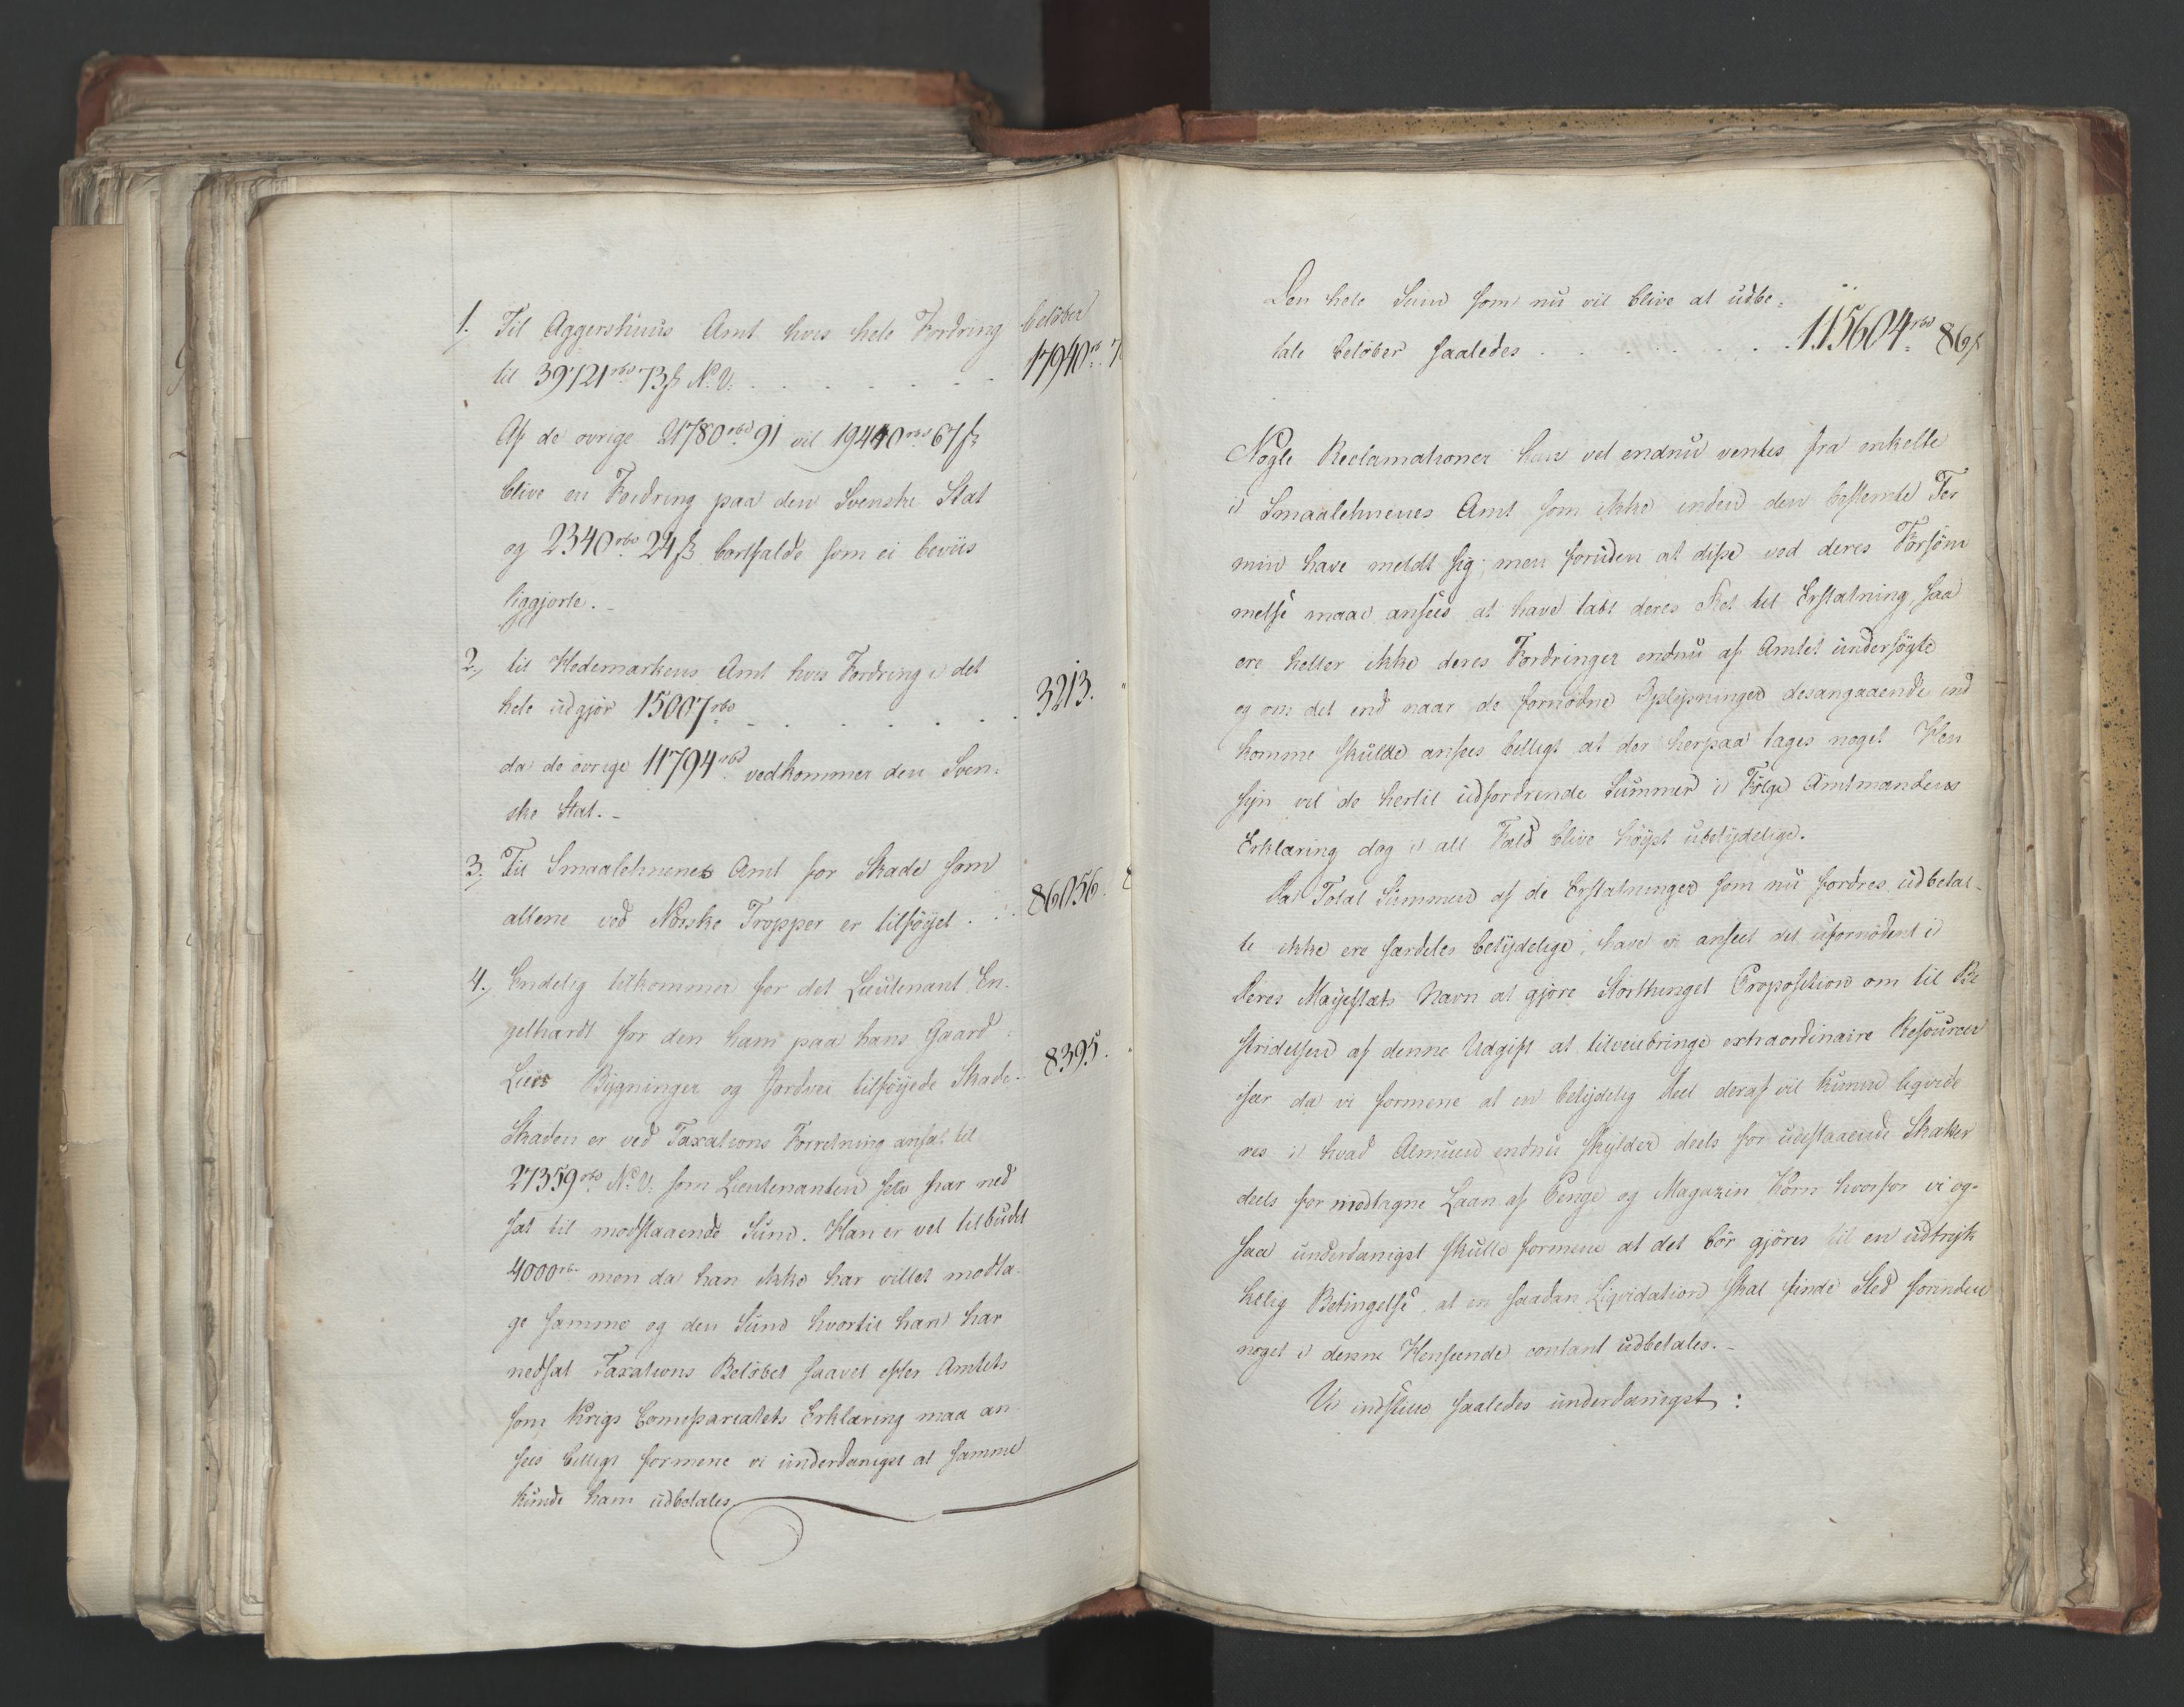 1. Til Aggershuus Amt hvis hele Fordring beløber
til 39721 rbd 73 ß N. V. . . . . . . . 17940 rb 7
Af de øvrige 21780 rbd 91 vil 19440 rbd 67 ß
blive en Fordring paa den Svenske Stat
og 2340 rbd 24 ß bortfalde som ei beviis
liggjorte. -
2., til Hedemarkens Amt hvis Fordring i det
hele udgjør 15007 rbd . . . . . . . 3213.
da de øvrige 11794 rbd vedkommer den Sven-
ske Stat. -
3., Til Smaalehnenes Amt for Skade som
allene ved Norske Tropper er tilføyet . . . 86056.
4., Endelig tilkommer for det Lieutenant En-
gelhardt for den ham paa hans Gaard
Liers Bygninger og Jordvei tilføyede Skade - 8395.
Skaden er ved Taxations Forretning ansat til
27359 rbd N. V. som Lieutenanten selv har ned
sat til modstaaende Sum. Han er vel tilbudet
4000 rb men da han ikke har villet modta-
ge samme og den Sum hvortil han har
nedsat Taxations Beløbet saavel efter Amtets
som Krigs Commissariatets Erklæring maa an
sees billigt formene vi underdanigst at samme
kunde ham udbetales
Den hele Sum som nu vil blive at udbe-
tale beløber saaledes . . . . . . . . 115604 rbd 86 ß
Nogle Reclamationer kan vel endnu ventes fra enkelte
i Smaalehnenes Amt som ikke inden den bestemte Ter
min have meldt sig; men foruden at disse ved deres Forsøm
melse maae ansees at have tabt deres Ret til Erstatning, saa
ere heller ikke deres Fordringer endnu af Amtet undersøgte
og om det end naar de fornødne Oplysninger desangaaende ind
komme skulde ansees billigt at der herpaa tages noget Hen
syn vil de hertil udfordrende Summer i Følge Amtmandens
Erklæring dog i all Fald blive høyst ubetydelige.
Da Total Summen af de Erstatninger som nu fordres udbetal-
te ikke ere særdeles betydelige, have vi anseet det ufornødent i
Deres Majestæts Navn at gjøre Storthinget Proposition om til Be
stridelsen af denne Udgift at tilveiebringe extraordinaire Resourcer
især da vi formene at en betydelig Deel deraf vil kunne liqvide
res i hvad Almuen endnu skylder deels for udestaaende Skatter
deels for modtagne Laan af Penge og Magazin Korn hvorfor vi og-
saa underdanigst skulle formene at det bør gjøres til en udtryk
kelig Betingelse, at en saadan Liqvidation skal finde Sted forinden
noget i denne Henseende contant udbetales. -
Vi indstille saaledes underdanigst: